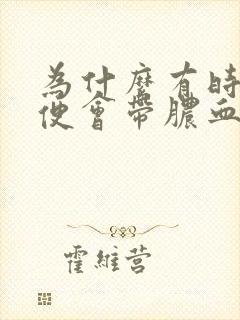 為什麼有時
便會帶膿血
霍維营